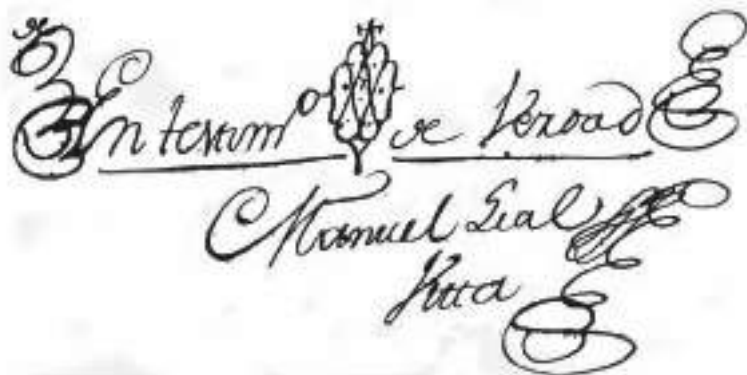 En testim.o de Verdad
Manuel Leal